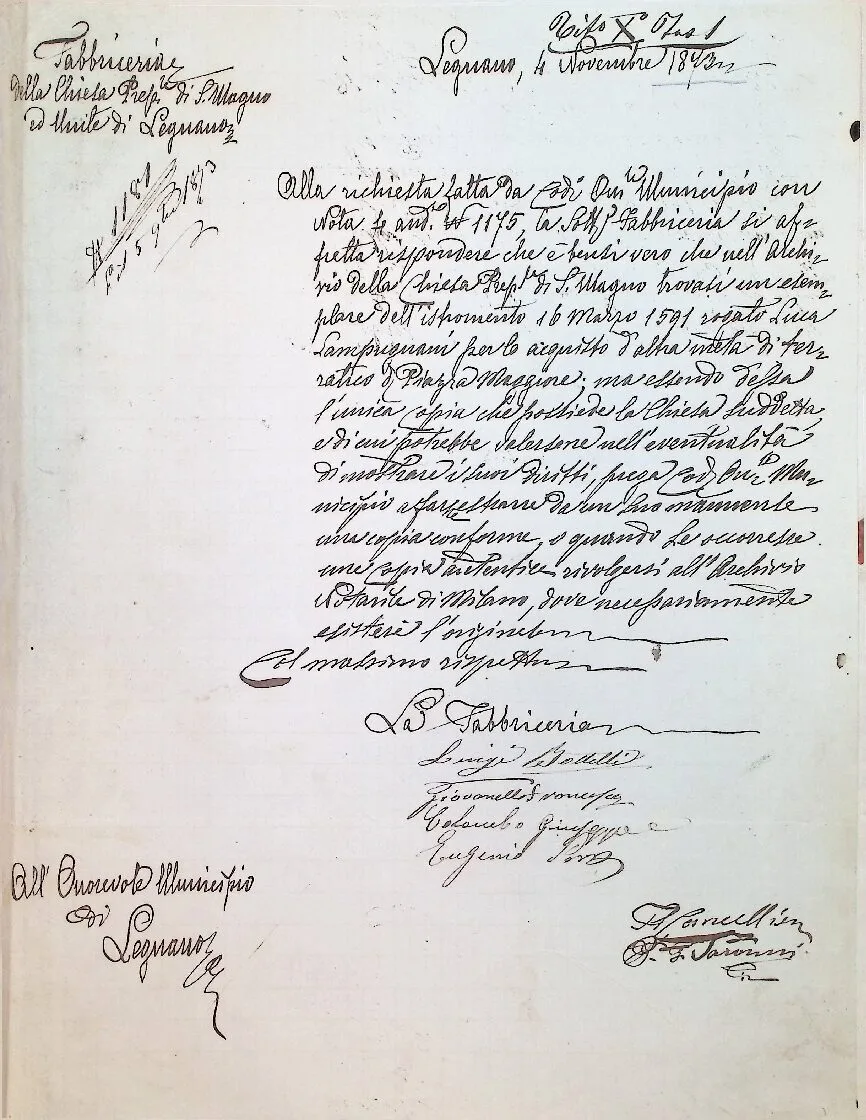 Tito X° Fas 1
Fabbriceria
della Chiesa Prep.le di S. Magno
ed Unite di Legnano
Legnano, 4 Novembre 1873
N 1181
5 9bre 1873
Alla richiesta fatta da cod.o On.le Municipio con
Nota 4 and.e N° 1175, la Sott.a Fabbriceria si af=
fretta rispondere che è bensì vero che nell'Archi=
vio della Chiesa Prep.le di S. Magno trovasi un esem=
plare dell'istromento 16 Marzo 1591 rogato Luca
Lampugnani per lo acquisto d'altra metà di ter=
ratico d Piazza Maggiore; ma essendo dessa
l'unica copia che possiede la Chiesa suddetta,
e di cui potrebbe valersene nell'eventualità
di mostrare i suoi diritti, prega cod.o On.le Mu=
nicipio a far estrarre da un suo
una copia conforme, o quando Le occorresse
una copia autentica rivolgersi all'Archivio
Notarile di Milano, dove necessariamente
esisterà l'originale
Col massimo rispetto
La Fabbriceria
Luigi
Giovanelli Francesco
Colombo Giuseppe
Eugenio
All' Onorevole Municipio
di
Legnano
Il Cancelliere